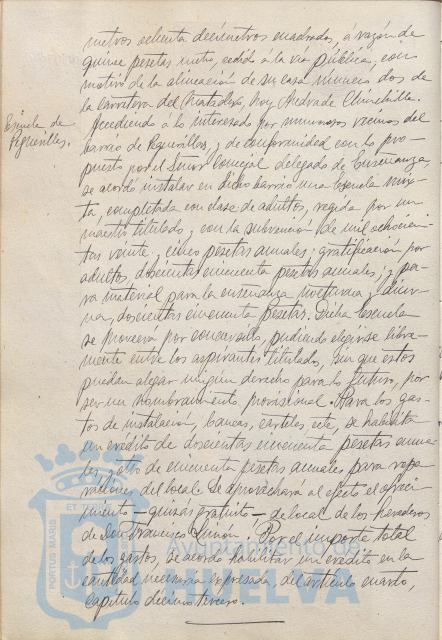 metros ochenta decímetros cuadrados, á razón de
quince pesetas metro, cedido á la vía pública, con
motivo de la alineación de su casa número dos de
la Carretera del Matadero, hoy Andrade Chinchilla.
Escuela de
Pegüerillas.
Accediendo á lo interesado por numerosos vecinos del
barrio de Pegüerillas, y de conformidad con lo pro-
puesto por el Señor Concejal delegado de Enseñanza,
se acordó instalar en dicho barrio una Escuela mix-
ta, completada con clase de adultos, regida por un
maestro titulado, y con la subvención de mil ochocien-
tas veinte y cinco pesetas anuales; gratificación por
adultos, doscientas cincuenta pesetas anuales, y pa-
ra material para la enseñanza nocturna y diur-
na, doscientas cincuenta pesetas. Dicha Escuela
se proveerá por concursillo, pudiendo elegirse libre-
mente entre los aspirantes titulados, sin que estos
puedan alegar ningún derecho para lo futuro, por
ser un nombramiento provisional. Para los gas-
tos de instalación, bancas, carteles, etc, se habilita
un crédito de doscientas cincuenta pesetas anua-
les, y otro de cincuenta pesetas anuales para repa-
raciones del local. Se aprovechará al efecto el ofreci-
miento - quizás gratuito - de local de los herederos
de Don Francisco Limón. Por el importe total
de los gastos, se acordó habilitar un crédito en la
cantidad necesaria expresada, del artículo cuarto,
Capítulo décimo tercero.
PORTUS MARIS ET
Ayuntamiento de
HUELVA